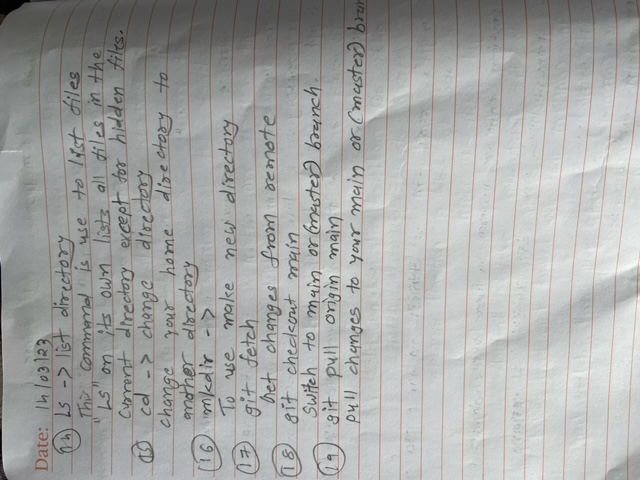 Date: 14/03/23
(14) Ls -> list directory
This command is use to list files
"Ls" on its own lists all files in the
current directory except for hidden files.
(15) cd -> change directory
change your home directory to
another directory
(16) mkdir ->
To use make new directory
(17) git fetch
Get changes from remote
(18) git checkout main
Switch to main or (master) branch.
(19) git pull origin main
pull changes to your main or (master) bran